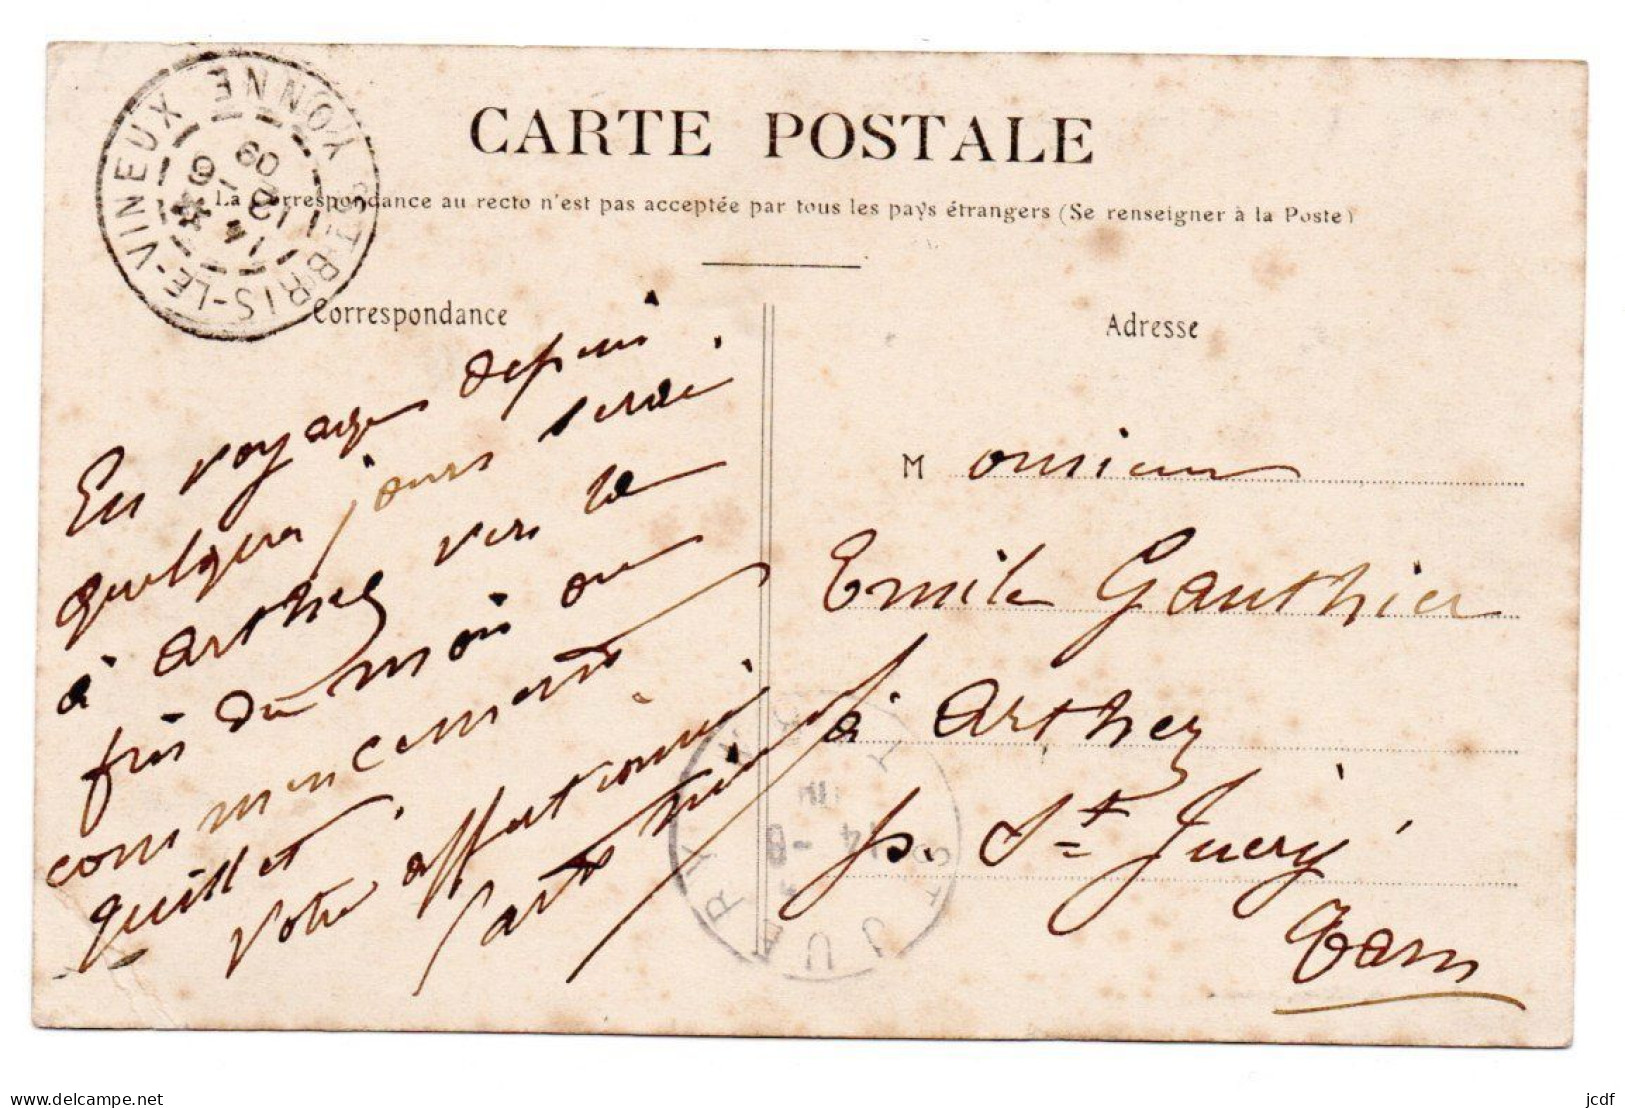 CARTE POSTALE
La Correspondance au recto n'est pas acceptée par tous les pays étrangers (Se renseigner à la Poste)
ST-BRIS-LE-VINEUX YONNE
14
12 -6
09
Correspondance
En voyage depui
quelques jours serai
à arthez vers la
fin du mois ou
commencement
juillet.
Votre affectionné
Adresse
M onsieur
Emile Gauthier
à arthez
p. St Juéry
Tarn
ST JUERY TARN
14 -6
Delcampe.net
jcdf